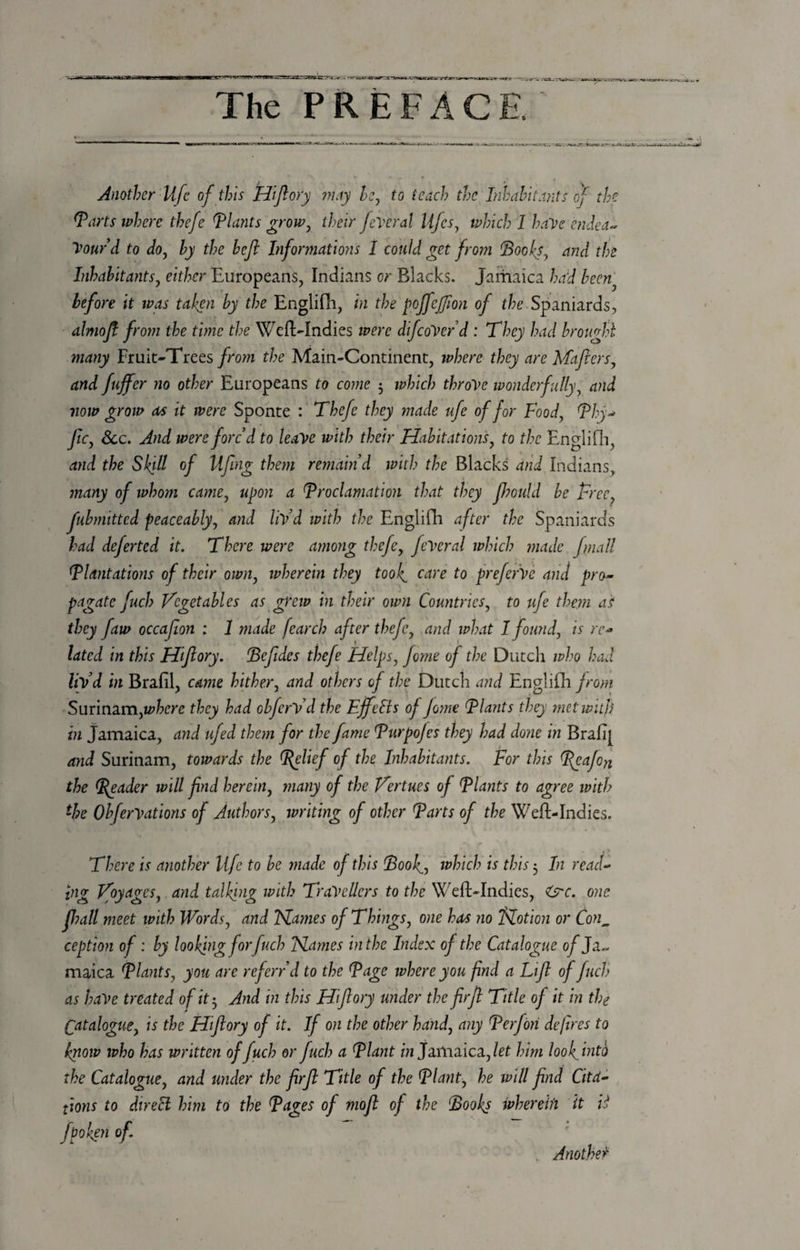 The PREFACE.
Another Uſe of this Hiſtory may be, to teach the Inhabitants of the
Parts where theſe Plants grow, their ſeveral Uſes, which I have endea-
vour'd to do, by the beſt Informations I could get from Books, and the
Inhabitants, either Europeans, Indians or Blacks. Jamaica had been,
before it was taken by the Engliſh, in the poſſeſſion of the Spaniards,
almoſt from the time the Weſt-Indies were diſcover'd : They had brought
many Fruit-Trees from the Main-Continent, where they are Maſters,
and ſuffer no other Europeans to come ; which throve wonderfully, and
now grow as it were Sponte : Theſe they made uſe of for Food, Phy-
ſic, &c. And were forc'd to leave with their Habitations, to the Engliſh,
and the Skill of Uſing them remain'd with the Blacks and Indians,
many of whom came, upon a Proclamation that they ſhould be Free,
ſubmitted peaceably, and liv'd with the Engliſh after the Spaniards
had deſerted it. There were among theſe, ſeveral which made ſmall
Plantations of their own, wherein they took care to preſerve and pro-
pagate ſuch Vegetables as grew in their own Countries, to uſe them as
they ſaw occaſion : I made ſearch after theſe, and what I found, is re-
lated in this Hiſtory. Beſides theſe Helps, ſome of the Dutch who had
liv'd in Braſil, came hither, and others of the Dutch and Engliſh from
Surinam, where they had obſerv'd the Effects of ſome Plants they met with
in Jamaica, and uſed them for the ſame Purpoſes they had done in Braſil
and Surinam, towards the Relief of the Inhabitants. For this Reaſon
the Reader will find herein, many of the Vertues of Plants to agree with
the Obſervations of Authors, writing of other Parts of the Weſt-Indies.
There is another Uſe to be made of this Book, which is this ; In read-
ing Voyages, and talking with Travellers to the Weſt-Indies, &c. one
ſhall meet with Words, and Names of Things, one has no Notion or Con_
ception of : by looking for ſuch Names in the Index of the Catalogue of Ja-
maica Plants, you are referr'd to the Page where you find a Liſt of ſuch
as have treated of it ; And in this Hiſtory under the firſt Title of it in the
Catalogue, is the Hiſtory of it. If on the other hand, any Perſon deſires to
know who has written of ſuch or ſuch a Plant in Jamaica, let him look into
the Catalogue, and under the firſt Title of the Plant, he will find Cita-
tions to direct him to the Pages of moſt of the Books wherein it is
ſpoken of.
Another